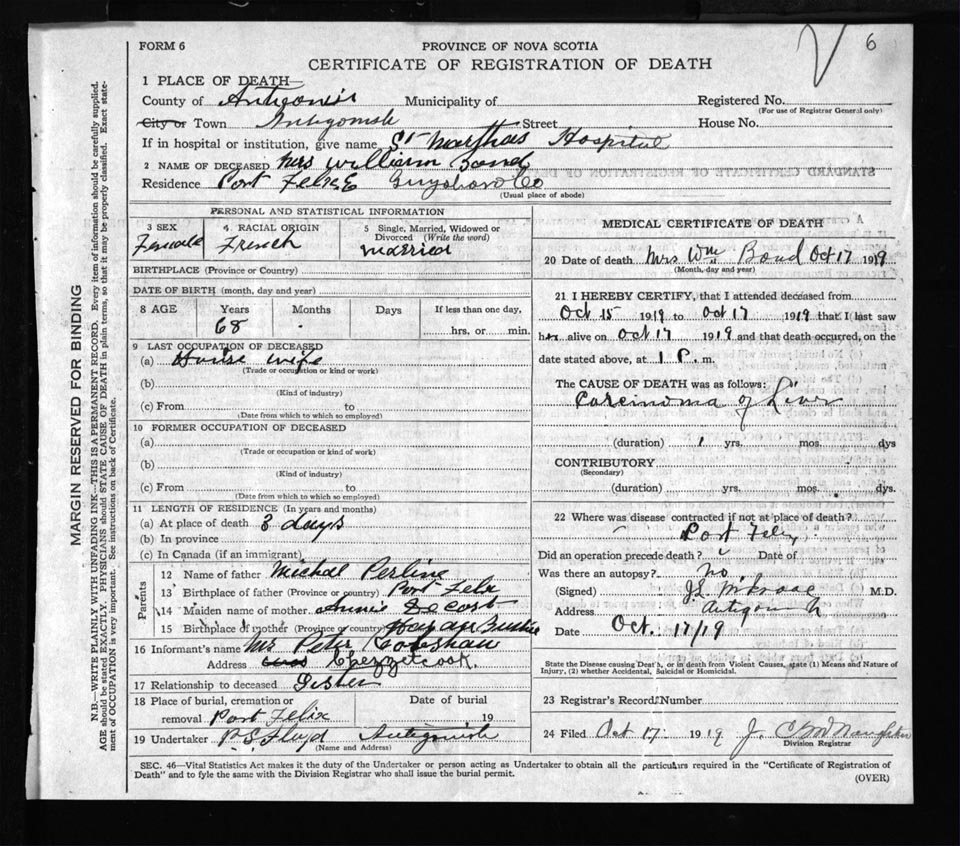 6
FORM 6
PROVINCE OF NOVA SCOTIA
CERTIFICATE OF REGISTRATION OF DEATH
1 PLACE OF DEATH—
County of Antigonish Municipality of Registered No.
(For use of Registrar General only)
City or Town Antigonish Street House No.
If in hospital or institution, give name St Marthas Hospital
2 NAME OF DECEASED Mrs William Bond
Residence Port Felix E Guysboro Co
(Usual place of abode)
PERSONAL AND STATISTICAL INFORMATION
3 SEX Female
4 RACIAL ORIGIN French
5 Single, Married, Widowed or Divorced (Write the word) married
BIRTHPLACE (Province or Country)
DATE OF BIRTH (month, day and year)
8 AGE Years Months Days If less than one day,
68 hrs. or min.
9 LAST OCCUPATION OF DECEASED
(a) House wife
(Trade or occupation or kind or work)
(b)
(Kind of industry)
(c) From to
(Date from which to which so employed)
10 FORMER OCCUPATION OF DECEASED
(a)
(Trade or occupation or kind of work)
(b)
(Kind of industry)
(c) From to
(Date from which to which so employed)
11 LENGTH OF RESIDENCE (In years and months)
(a) At place of death 3 days
(b) In province
(c) In Canada (if an immigrant)
Parents
12 Name of father Michael Perline
13 Birthplace of father (Province or country) Port Felix
14 Maiden name of mother Annie Decost
15 Birthplace of mother (Province or country)
16 Informant's name Mrs Peter
Address Chezzetcook.
17 Relationship to deceased Sister
18 Place of burial, cremation or removal Port Felix
Date of burial 19
19 Undertaker P S Floyd Antigonish
(Name and Address)
MEDICAL CERTIFICATE OF DEATH
20 Date of death Mrs Wm Bond Oct 17 1919
(Month, day and year)
21 I HEREBY CERTIFY, that I attended deceased from
Oct 15 1919 to Oct 17 1919 that I last saw
her alive on Oct 17 1919 and that death occurred, on the
date stated above, at 1 P. m.
The CAUSE OF DEATH was as follows:
Carcinoma of Liver
(duration) 1 yrs. mos. dys
CONTRIBUTORY
(Secondary)
(duration) yrs. mos. dys.
22 Where was disease contracted if not at place of death?
Port Felix
Did an operation precede death? Date of
Was there an autopsy? No
(Signed) M.D.
Address
Date Oct. 17/19
State the Disease causing Death, or in death from Violent Causes, state (1) Means and Nature of
Injury, (2) whether Accidental, Suicidal or Homicidal.
23 Registrar's Record Number
24 Filed Oct 17 1919 J.
Division Registrar
SEC. 46—Vital Statistics Act makes it the duty of the Undertaker or person acting as Undertaker to obtain all the particulars required in the "Certificate of Registration of
Death" and to fyle the same with the Division Registrar who shall issue the burial permit.
(OVER)
MARGIN RESERVED FOR BINDING
N.B.—WRITE PLAINLY WITH UNFADING INK—THIS IS A PERMANENT RECORD. Every item of information should be carefully supplied.
AGE should be stated EXACTLY. PHYSICIANS should STATE CAUSE OF DEATH in plain terms, so that it may be properly classified. Exact state-
ment of OCCUPATION is very important. See instructions on back of Certificate.